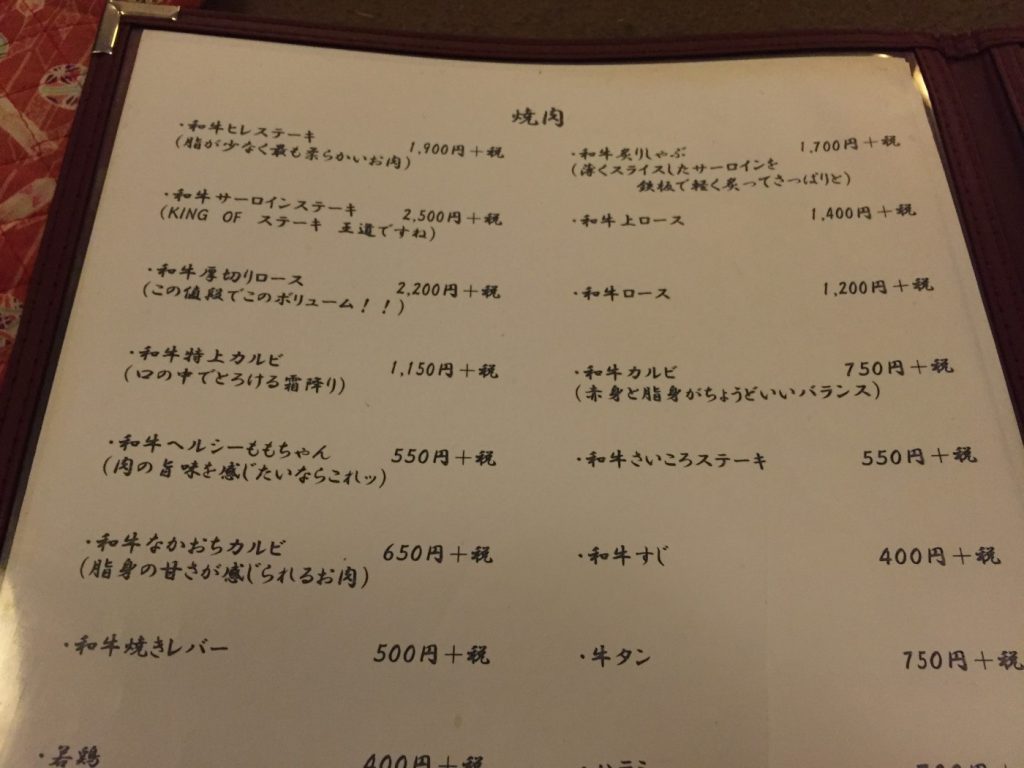 焼肉
・和牛ヒレステーキ 1,900円+税
(脂が少なく最も柔らかいお肉)
・和牛サーロインステーキ 2,500円+税
(KING OF ステーキ 王道ですね)
・和牛厚切りロース 2,200円+税
(この値段でこのボリューム!!)
・和牛特上カルビ 1,150円+税
(口の中でとろける霜降り)
・和牛ヘルシーももちゃん 550円+税
(肉の旨味を感じたいならこれッ)
・和牛なかおちカルビ 650円+税
(脂身の甘さが感じられるお肉)
・和牛焼きレバー 500円+税
・若鶏 400円+税
・和牛炙りしゃぶ 1,700円+税
(薄くスライスしたサーロインを
鉄板で軽く炙ってさっぱりと)
・和牛上ロース 1,400円+税
・和牛ロース 1,200円+税
・和牛カルビ 750円+税
(赤身と脂身がちょうどいいバランス)
・和牛さいころステーキ 550円+税
・和牛すじ 400円+税
・牛タン 750円+税